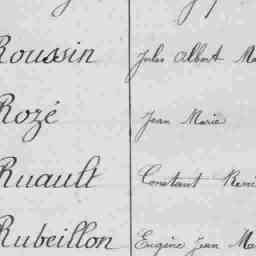 Roussin Jules Albert Ma
Rozé Jean Marie
Ruault Constant René
Rubeillon Eugène Jean Ma